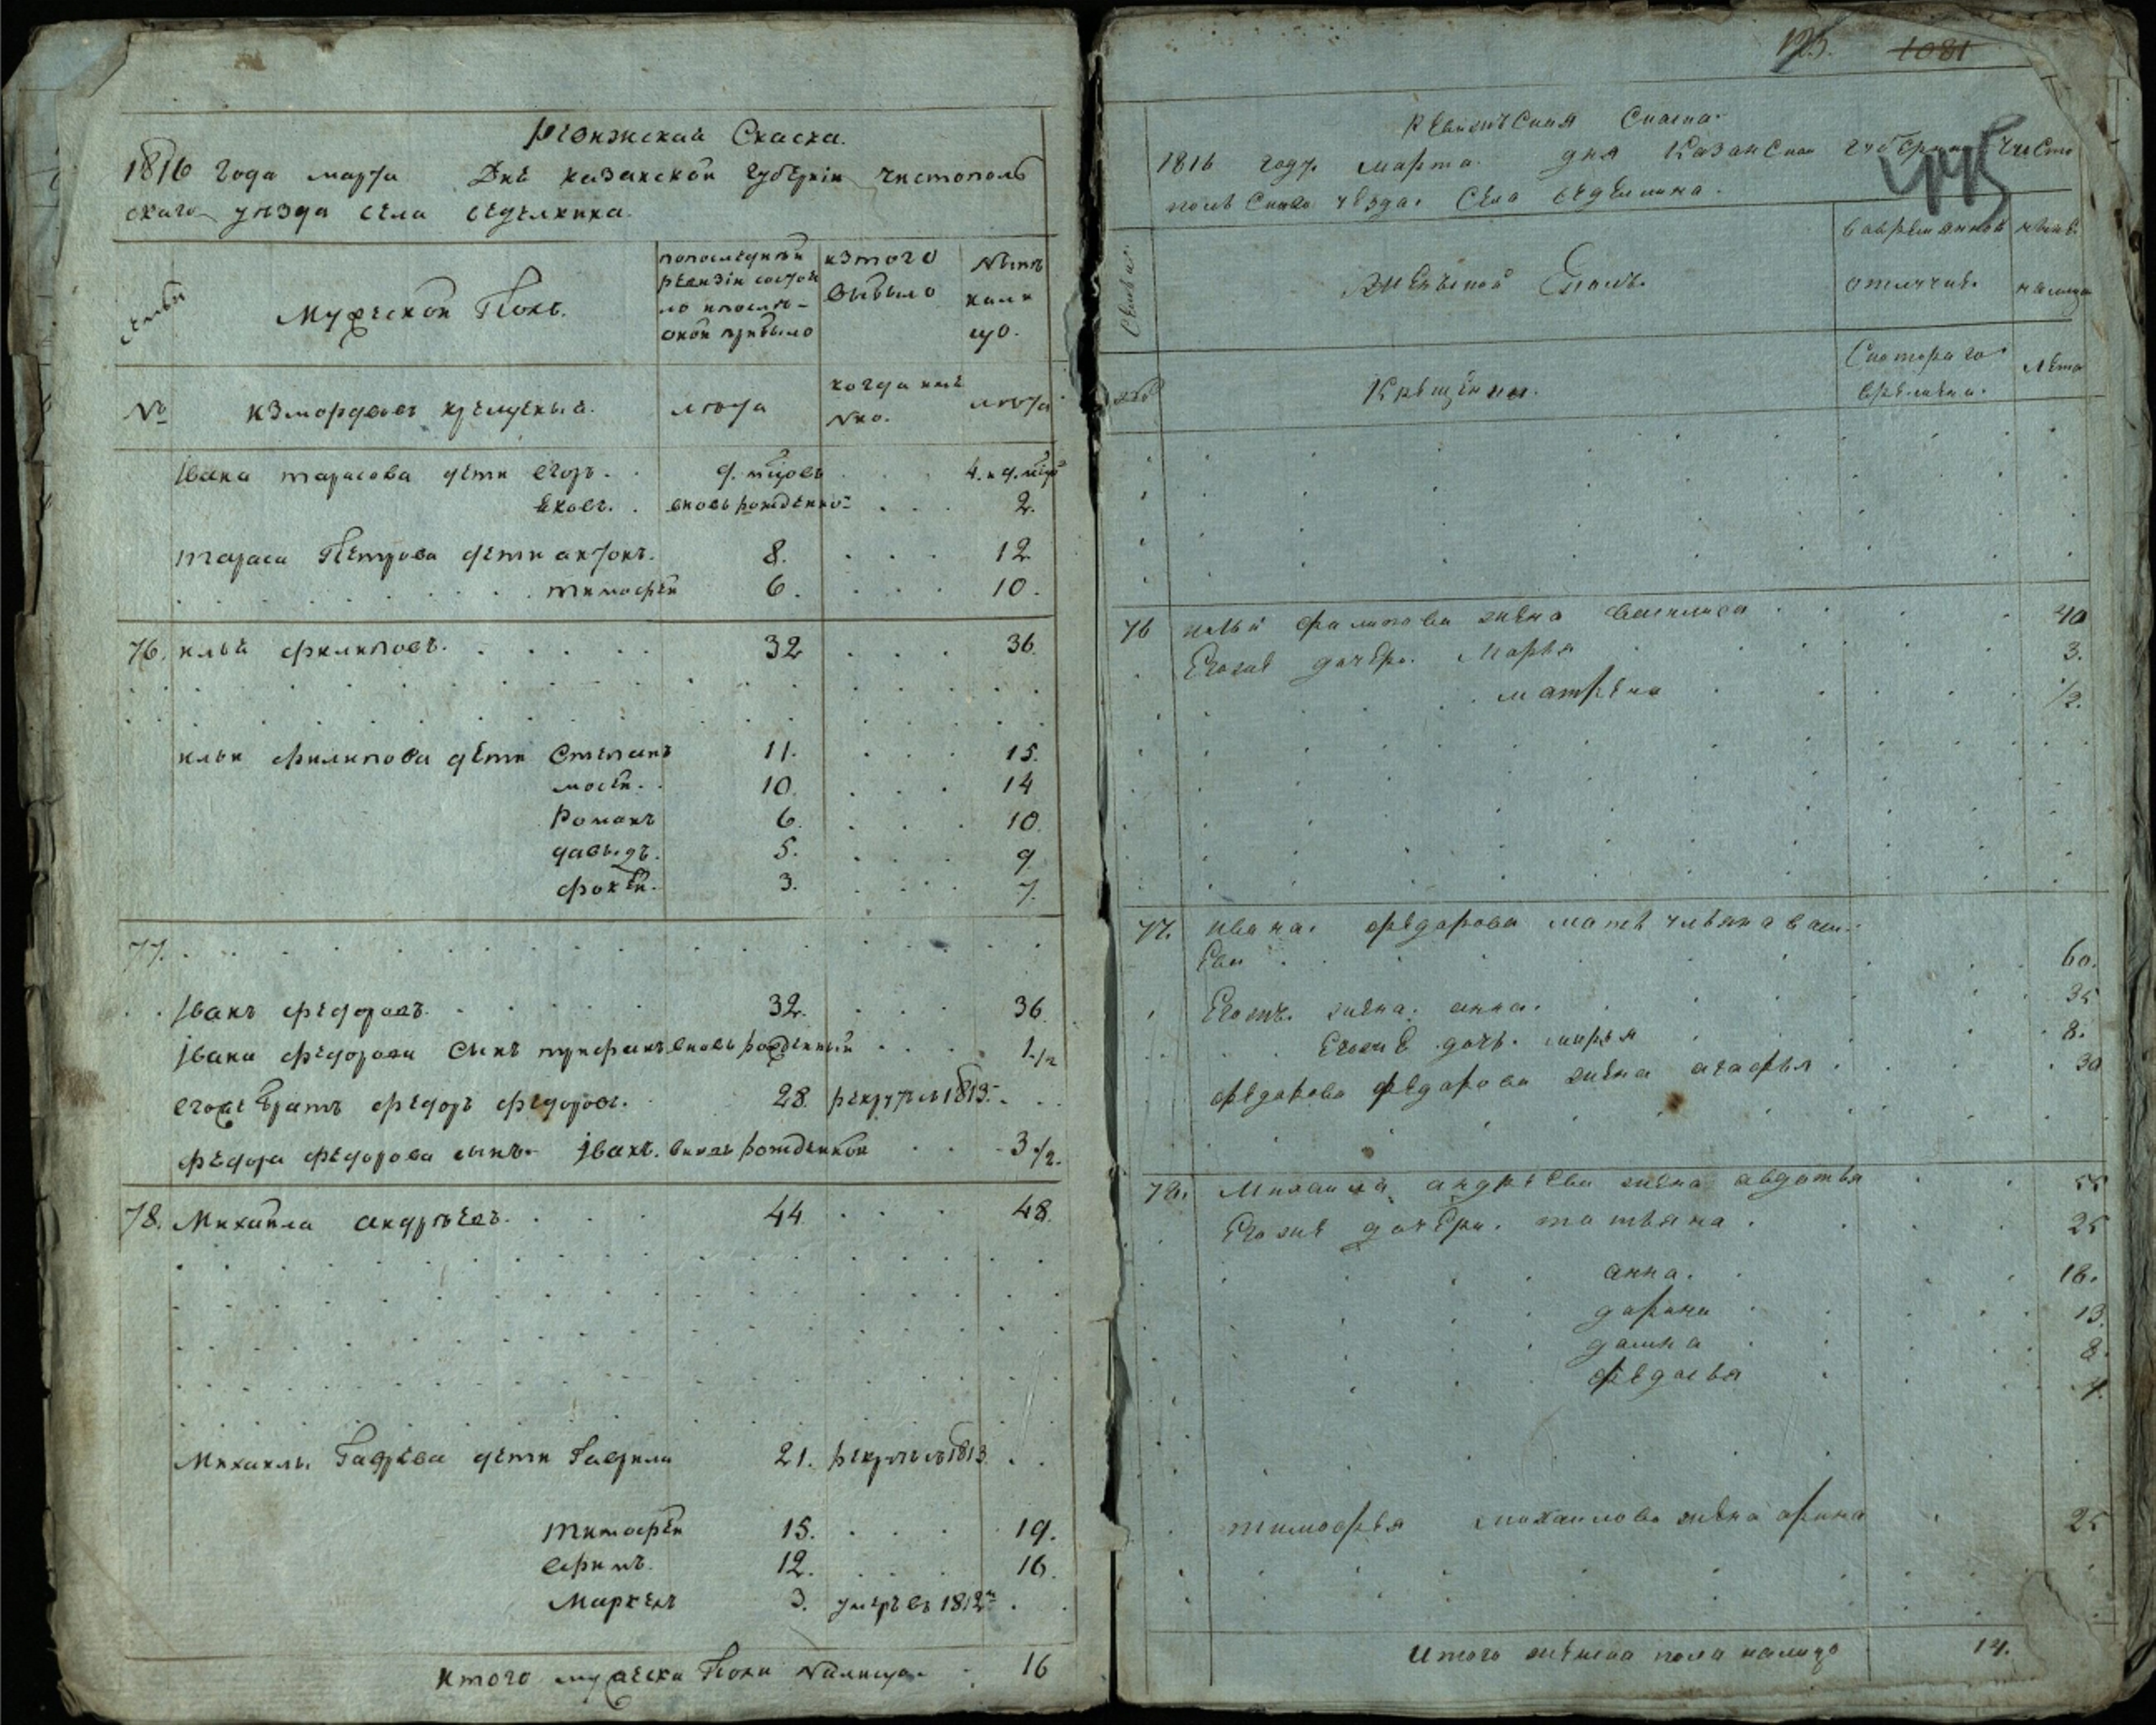 Ревижская Скаска.
1816 года марта Дня казанской губернiи чистополь
скаго уезда села седелкина.
семьи
Мужеской Полъ.
попоследней
ревизiи состоя
ло и после
оной прибыло
изтого
выбыло
Ныне
нали
цо.
№
измордовъ крещеныя.
лета
когда имяно.
лета
Iвана тарасова дети егоръ. 9. мцовъ 4. и 9. мцо
яковъ. вновь рожденно 2.
тараса Петрова дети антонъ. 8. 12
тимофеи 6. 10.
76. илья филиповъ. 32 36.
ильи филипова дети Степанъ 11. 15.
мосеи. 10. 14
Романъ 6. 10.
давыдъ. 5. 9
фокеи. 3. 7.
77.
Iванъ федоровъ. 32. 36.
Iвана федорова сынъ вновь рожденный 1 1/2
егоже братъ федоръ федоровъ. 28. рекрутъ 1813
федора федорова сынъ Iванъ. вновь рожденной 3 1/2.
78. Михаила андреевъ. 44. 48.
Михаилы дети Гаврила 21. рекрутъ 1813
тимофеи 15. 19.
ефимъ. 12. 16.
Маркелъ 3. умеръ въ 1812м
итого мужеска Пола налицо 16
125. 1081
445
Ревизъская Скаска.
1816 году марта. дня Казанской губернии Чисто
польскаго уезда. Села седелкина.
Семьи.
Женъской Полъ.
вовременной
отлучке.
ныне.
налицо
Крещеныи.
Скоторого
времени.
Лета
76 ильи филипова жена василиса 40
Егоже дочери. Марья 3.
матрена 1/2.
77. ивана. федарова мать ульяна васи
Ева 60.
Егожъ. жена. анна. 35
Егоже дочь. марья 8.
федарова федарова жена агафья 30
78. Михаила андреева жена авдотья 55
Егоже дочери. татьяна. 25
анна. 18.
дарья 13.
8.
федосья 4.
тимофея михаилова жена арина 25
Итого женска пола налицо 14.